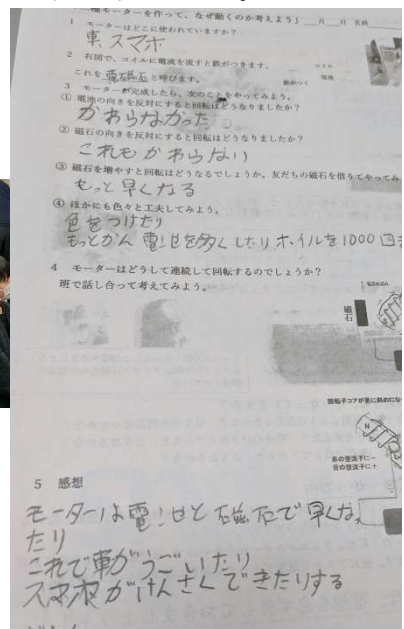 極モーターを作って、なぜ動くのか考えよう」 月 日 名前
1 モーターはどこに使われていますか?
車、スマホ
2 右図で、コイルに電流を流すと鉄がつきます。
これを 電磁石 と呼びます。
コイル
電池
鉄がつく
3 モーターが完成したら、次のことをやってみよう。
① 電池の向きを反対にすると回転はどうなりましたか?
がわらなかった。
② 磁石の向きを反対にすると回転はどうなりましたか?
これもがわらない
③ 磁石を増やすと回転はどうなるでしょうか、友だちの磁石を借りてやってみ
もっと早くなる
④ ほかにも色々と工夫してみよう。
色をつけたり
もっとかん電池を多くしたりホイルを1000回
4 モーターはどうして連続して回転するのでしょうか?
班で話し合って考えてみよう。
磁石
回転子コアが更に斜めにな
赤の整流子に−
青の整流子に+
5 感想
モーターは電池と磁石で早くな
たり
これで車がうごいたり
スマホがけんさくできたりする